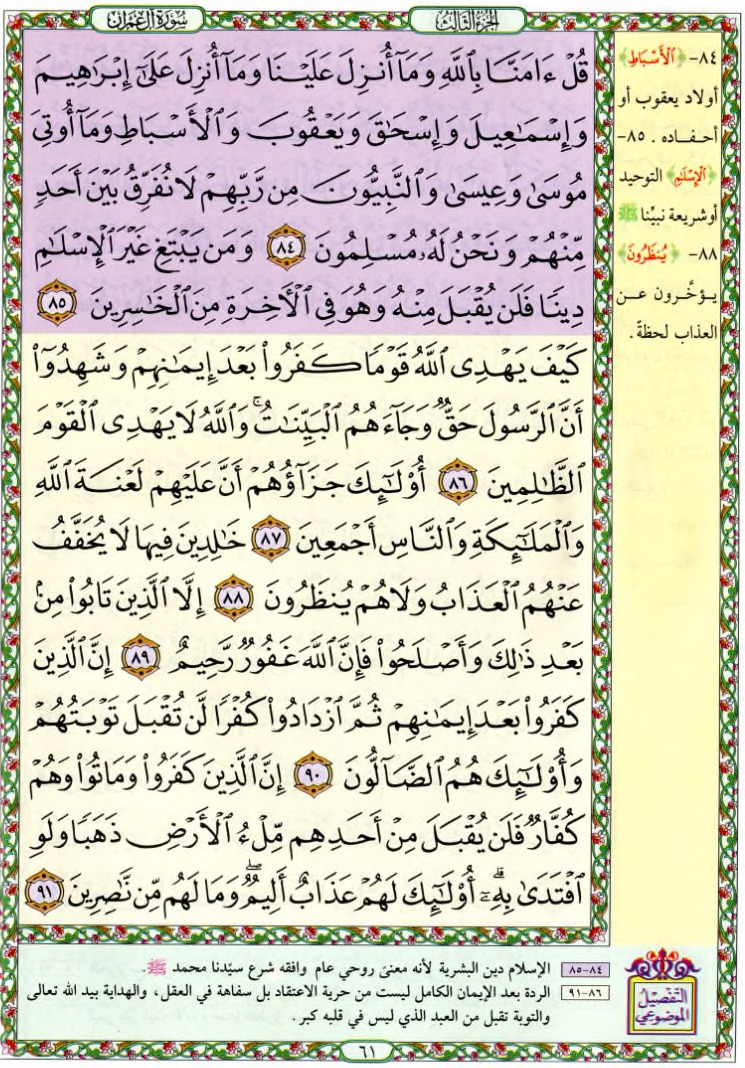 سُورَةُ آلِ عِمْرَان
الجُزءُ الثَّالِثُ
قُلْ ءَامَنَّا بِٱللَّهِ وَمَآ أُنزِلَ عَلَيْنَا وَمَآ أُنزِلَ عَلَىٰٓ إِبْرَٰهِيمَ
وَإِسْمَٰعِيلَ وَإِسْحَٰقَ وَيَعْقُوبَ وَٱلْأَسْبَاطِ وَمَآ أُوتِىَ
مُوسَىٰ وَعِيسَىٰ وَٱلنَّبِيُّونَ مِن رَّبِّهِمْ لَا نُفَرِّقُ بَيْنَ أَحَدٍ
مِّنْهُمْ وَنَحْنُ لَهُۥ مُسْلِمُونَ ٨٤ وَمَن يَبْتَغِ غَيْرَ ٱلْإِسْلَٰمِ
دِينًا فَلَن يُقْبَلَ مِنْهُ وَهُوَ فِى ٱلْأَخِرَةِ مِنَ ٱلْخَٰسِرِينَ ٨٥
كَيْفَ يَهْدِى ٱللَّهُ قَوْمًا كَفَرُوا۟ بَعْدَ إِيمَٰنِهِمْ وَشَهِدُوٓا۟
أَنَّ ٱلرَّسُولَ حَقٌّ وَجَآءَهُمُ ٱلْبَيِّنَٰتُ ۚ وَٱللَّهُ لَا يَهْدِى ٱلْقَوْمَ
ٱلظَّٰلِمِينَ ٨٦ أُو۟لَٰٓئِكَ جَزَآؤُهُمْ أَنَّ عَلَيْهِمْ لَعْنَةَ ٱللَّهِ
وَٱلْمَلَٰٓئِكَةِ وَٱلنَّاسِ أَجْمَعِينَ ٨٧ خَٰلِدِينَ فِيهَا لَا يُخَفَّفُ
عَنْهُمُ ٱلْعَذَابُ وَلَا هُمْ يُنظَرُونَ ٨٨ إِلَّا ٱلَّذِينَ تَابُوا۟ مِنۢ
بَعْدِ ذَٰلِكَ وَأَصْلَحُوا۟ فَإِنَّ ٱللَّهَ غَفُورٌ رَّحِيمٌ ٨٩ إِنَّ ٱلَّذِينَ
كَفَرُوا۟ بَعْدَ إِيمَٰنِهِمْ ثُمَّ ٱزْدَادُوا۟ كُفْرًا لَّن تُقْبَلَ تَوْبَتُهُمْ
وَأُو۟لَٰٓئِكَ هُمُ ٱلضَّآلُّونَ ٩٠ إِنَّ ٱلَّذِينَ كَفَرُوا۟ وَمَاتُوا۟ وَهُمْ
كُفَّارٌ فَلَن يُقْبَلَ مِنْ أَحَدِهِم مِّلْءُ ٱلْأَرْضِ ذَهَبًا وَلَوِ
ٱفْتَدَىٰ بِهِۦٓ ۗ أُو۟لَٰٓئِكَ لَهُمْ عَذَابٌ أَلِيمٌ ۖ وَمَا لَهُم مِّن نَّٰصِرِينَ ٩١
٨٤- ﴿ٱلْأَسْبَاطِ﴾
أولاد يعقوب أو
أحفاده . ٨٥-
﴿ٱلْإِسْلَٰمِ﴾ التوحيد
أو شريعة نبيِّنا ﷺ
٨٨- ﴿يُنظَرُونَ﴾
يؤخَّرون عن
العذاب لحظةً .
٨٤-٨٥ الإسلام دين البشرية لأنه معنىً روحي عام وافقه شرع سيّدنا محمد ﷺ.
٨٦-٩١ الردة بعد الإيمان الكامل ليست من حرية الاعتقاد بل سفاهة في العقل، والهداية بيد الله تعالى
والتوبة تقبل من العبد الذي ليس في قلبه كبر .
التَّفصيل
الموضوعي
٦١